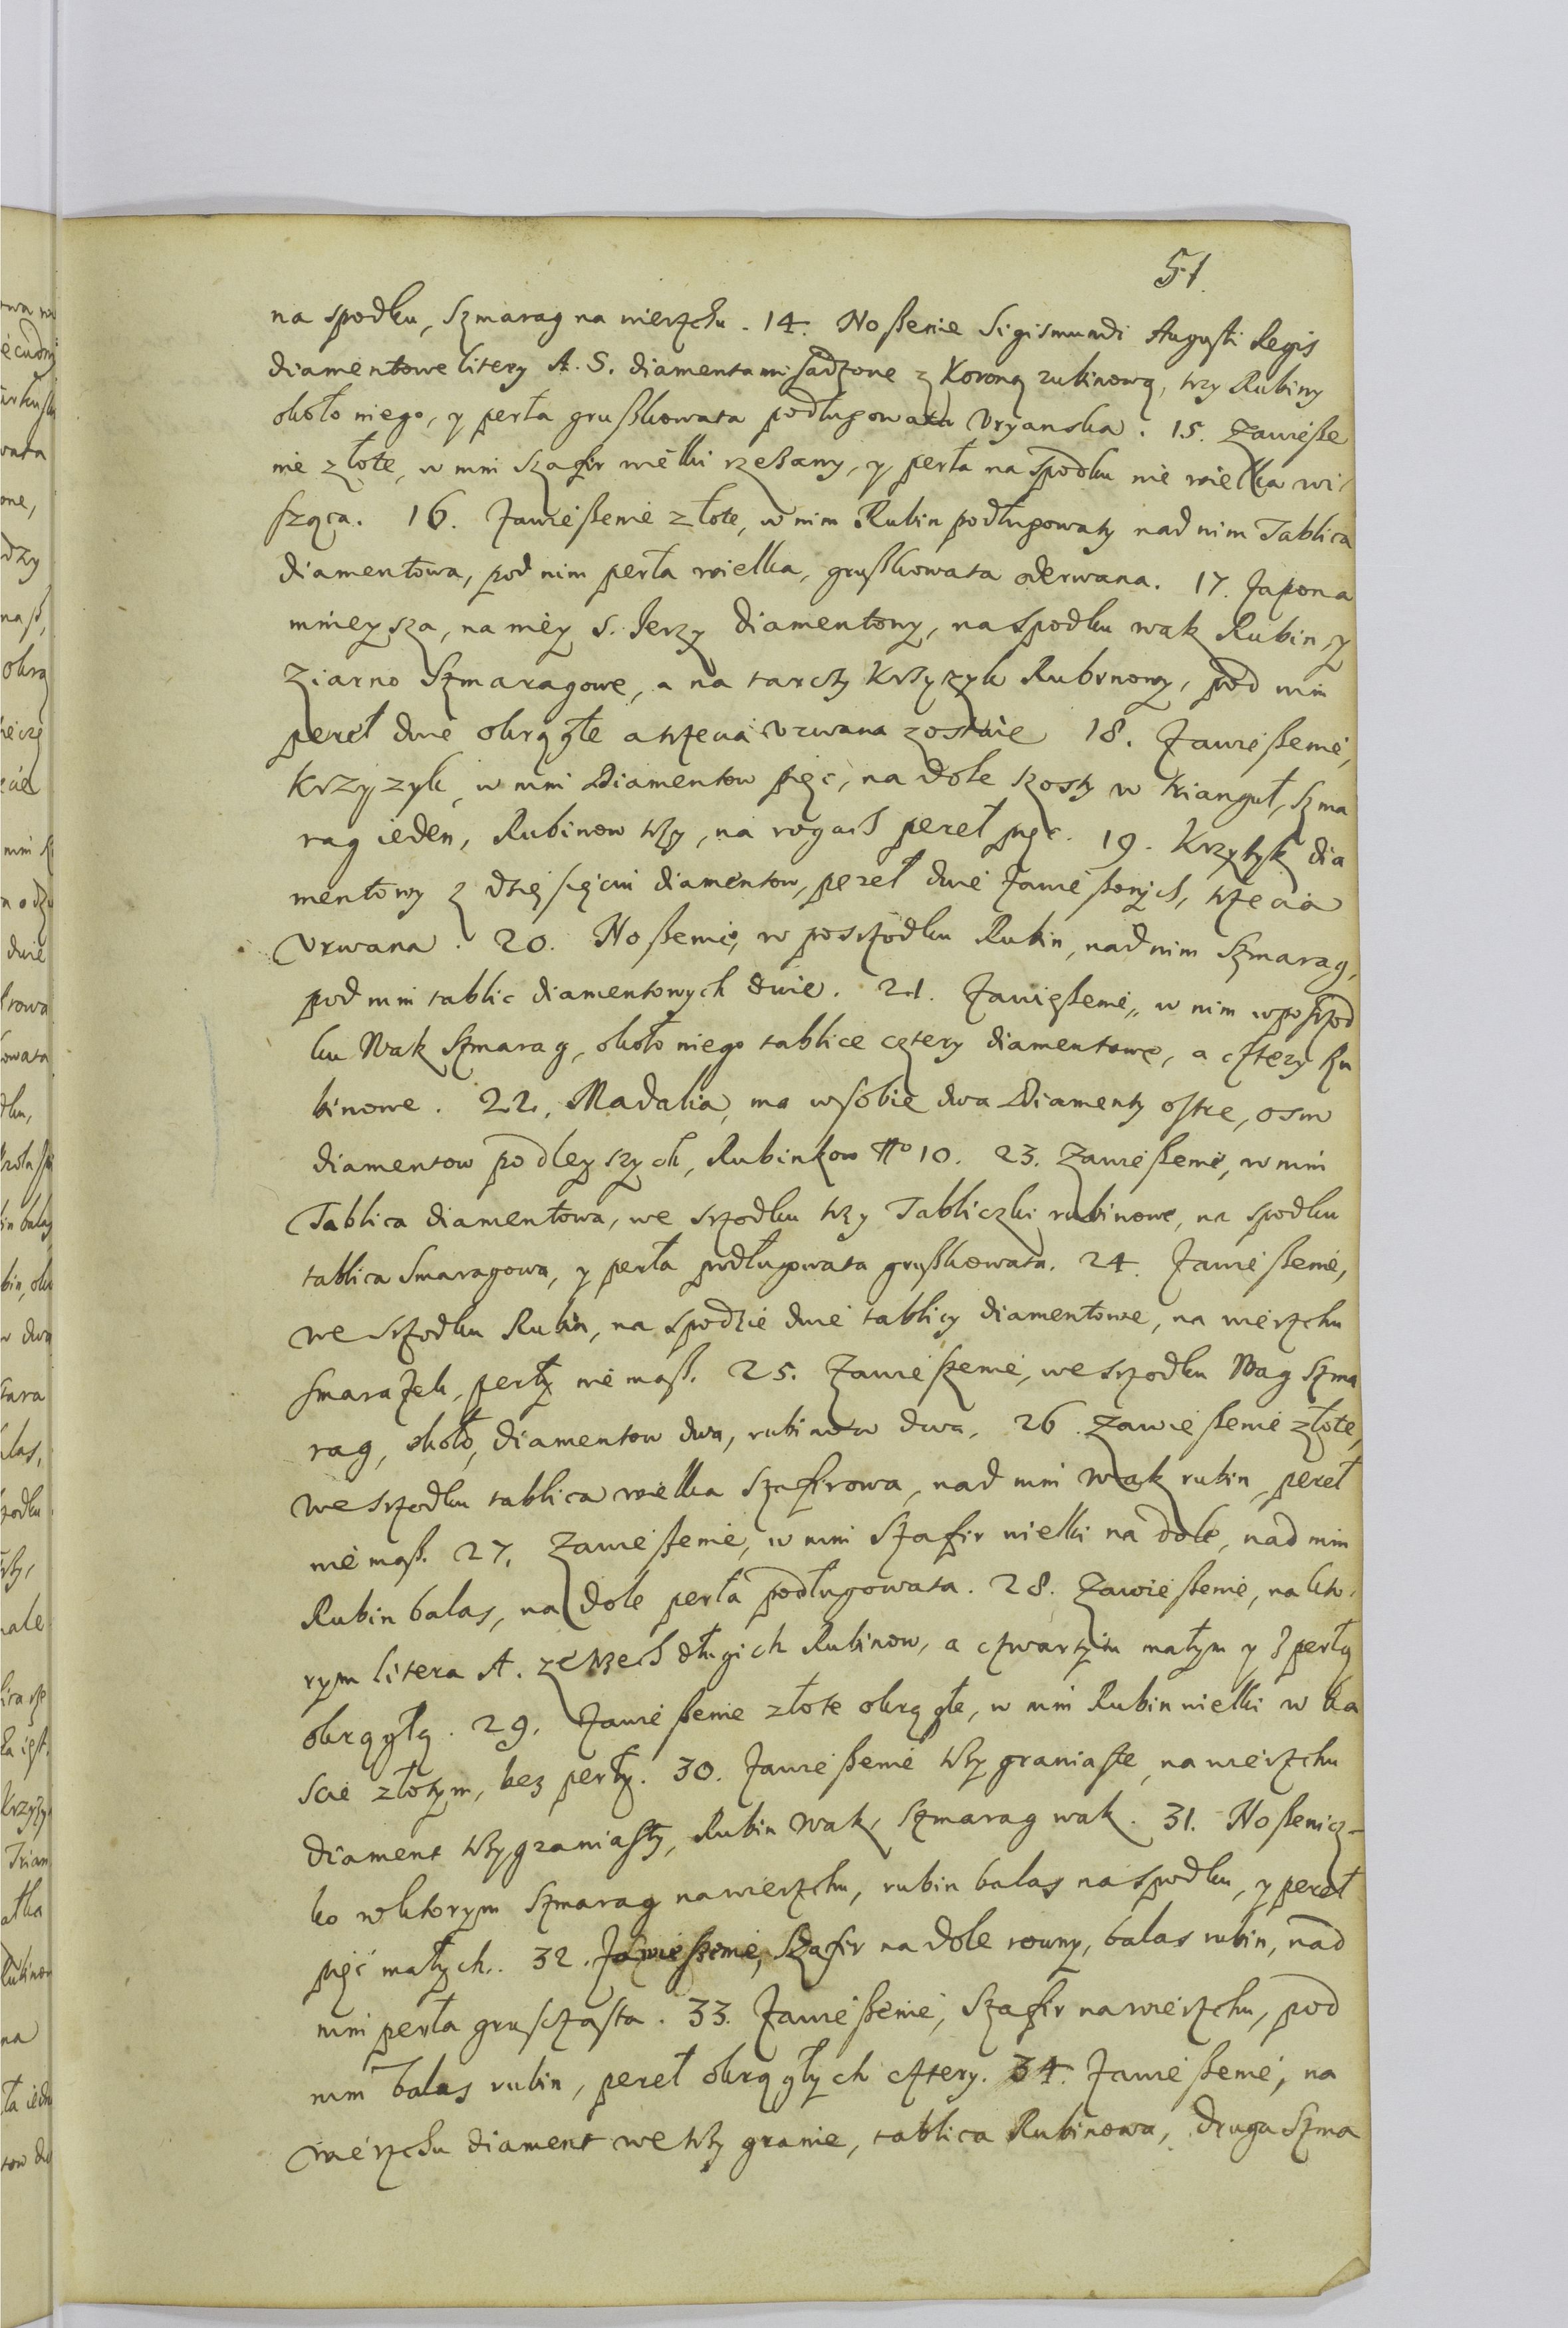 51.
na spodku, Szmarag na wierzchu. 14. Noßenie Sigismundi Augusti Regis
diamentowe litery A. S. diamentami sadzone z Koroną rubinową, trzy Rubiny
około niego, y perła grußkowata podługowata Uryanska. 15. Zawieße
nie złote, w nim Szafir wielki rzezany, y perła na spodku nie wielka wi
sząca. 16. Zawießenie złote, w nim Rubin podługowaty nad nim Tablica
diamentowa, pod nim perła wielka, grußkowata oderwana. 17. Zapona
mnieysza, na niey S. Jerzy diamentowy, na spodku wak Rubin y
ziarno Szmaragowe, a na tarczy krzyzyk Rubinowy, pod nim
pereł dwie okrągłe a trzecia urwana zostaie 18. Zawießenie,
krzyzyk, w nim Diamentow pięc, na dole szosty w triangul, Szma
rag ieden, Rubinow trzy, na rogach pereł pięc. 19. Krzyżyk dia
mentowy z dziesięcui diamentow, pereł dwie Zawießonych, trzecia
Urwana. 20. Noßenie, w poszrodku Rubin, nad nim Szmarag,
pod nim tablic diamentowych dwie. 21. Zawießenie, w nim wposrzod
ku Wak Szmarag, około niego tablice cztery diamentowe, a cztery Ru
binowe. 22. Madalia, ma w sobie dwa Diamenty ostre, osm
diamentow podleyszych, Rubinkow No 10. 23. Zawießenie, w nim
Tablica diamentowa, we srzodku trzy Tabliczki rubinowe, na spodku
tablica Smaragowa, y perła podługowata grußkowata. 24. Zawießenie,
we srzodku Rubin, na spodzie dwie tablicy diamentowe, na wierzchu
smarażek, perły nie maß. 25. Zawieszenie, we srzodku Wag Szma
rag, około, diamentow dwa, rubinow dwa. 26. Zawießenie złote,
we srzodku tablica wielka Szafirowa, nad nim wak rubin, pereł
nie maß. 27. Zawießenie, w nim Szafir wielki na dole, nad nim
Rubin balas, na dole perła podługowata. 28. Zawießenie, na kto
rym litera A. z trzech długich Rubinow, a czwartym małym y z perłą
okrągłą. 29. Zawießenie złote okrągłe, w nim Rubin wielki w ka
scie złotym, bez perły. 30. Zawießenie trzy graniaste, na wierzchu
diament trzygraniasty, Rubin wak, Szmarag wak. 31. Noßenicz-
ko w ktorym Szmarag na wierzchu, rubin balas na spodku, y pereł
pięć małych. 32. Zawießenie, Szafir na dole rowny, balas rubin, nad
nim perła gruszczasta. 33. Zawießenie, Szafir na wierzchu, pod
nim balas rubin, pereł okrągłych cztery. 34. Zawießenie, na
wierzchu diament we trzy granie, tablica Rubinowa, druga Szma